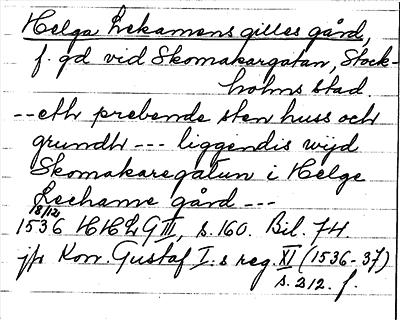 Helga Lekamens gilles gård,
f. gd vid Skomakargatan, Stock-
holms stad.
-- eth prebende sten huss och
grundh --- liggendis wijd
Skomakaregatun i Helge
Lechame gård ---
18/12
1536 HHLG III, s. 160. Bil. 74
jfr Kon. Gustaf I:s reg. XI (1536-37)
s. 212. f.